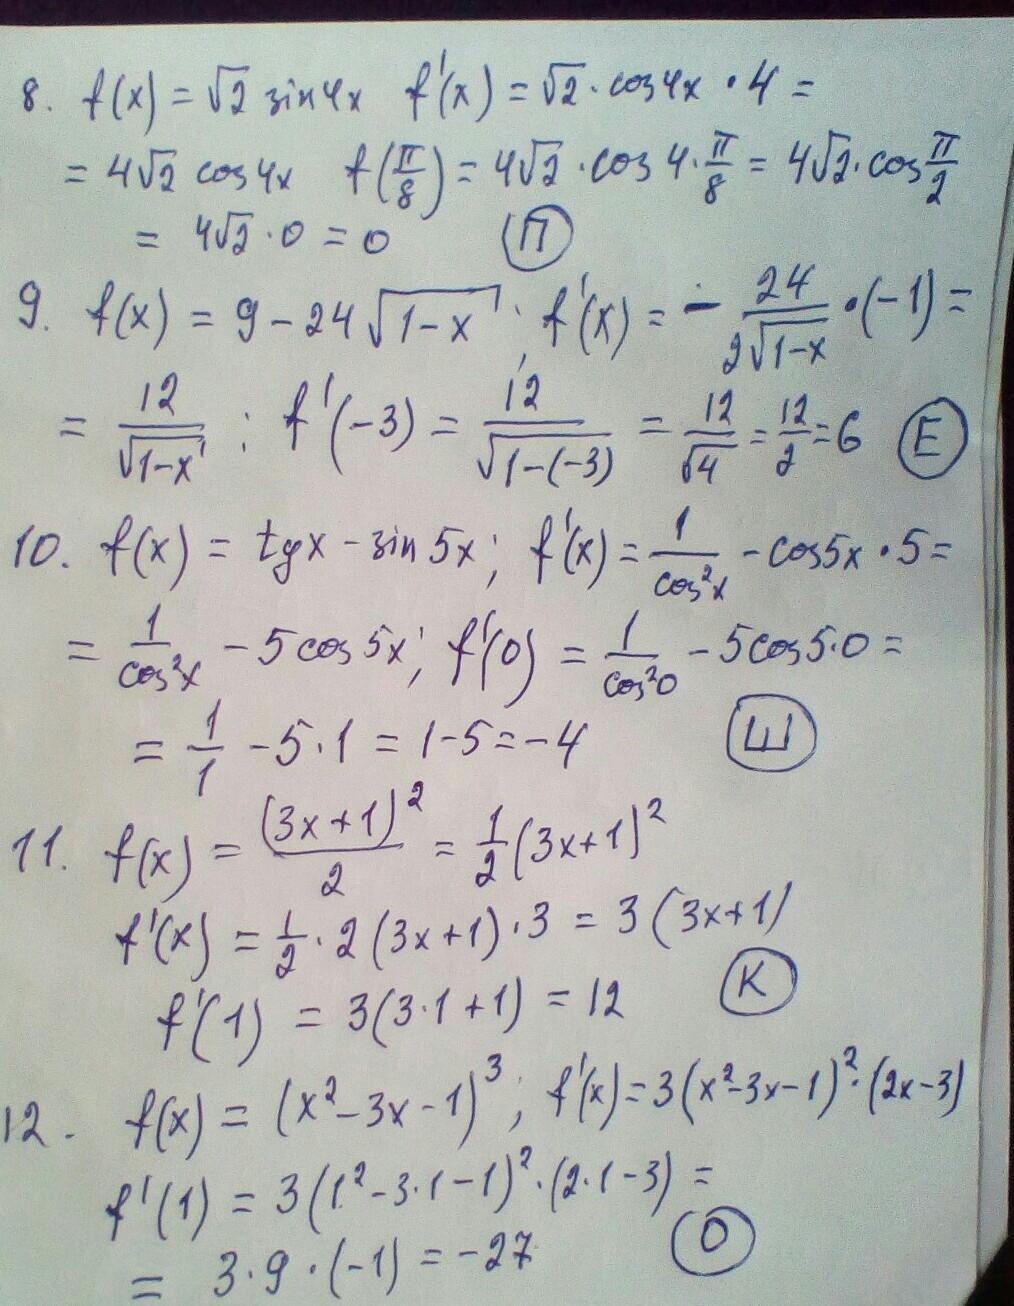 8. f(x) = √2 sin4x f'(x) = √2 · cos4x · 4 =
= 4√2 cos4x f(π/8) = 4√2 · cos 4 · π/8 = 4√2 · cos π/2
= 4√2 · 0 = 0 П
9. f(x) = 9 – 24√(1–x) ; f'(x) = – 24/(2√(1–x)) · (–1) =
= 12/√(1–x) ; f'(–3) = 12/√(1–(–3)) = 12/√4 = 12/2 = 6 Е
10. f(x) = tgx – sin 5x ; f'(x) = 1/cos²x – cos5x · 5 =
= 1/cos²x – 5 cos 5x ; f'(0) = 1/cos²0 – 5cos5·0 =
= 1/1 – 5·1 = 1–5 = –4 Ш
11. f(x) = (3x+1)²/2 = 1/2 (3x+1)²
f'(x) = 1/2 · 2 (3x+1) · 3 = 3 (3x+1)
f'(1) = 3(3·1+1) = 12 К
12. f(x) = (x²–3x–1)³ ; f'(x) = 3(x²–3x–1)² · (2x–3)
f'(1) = 3(1²–3·1–1)² · (2·1–3) =
= 3·9·(–1) = –27 О